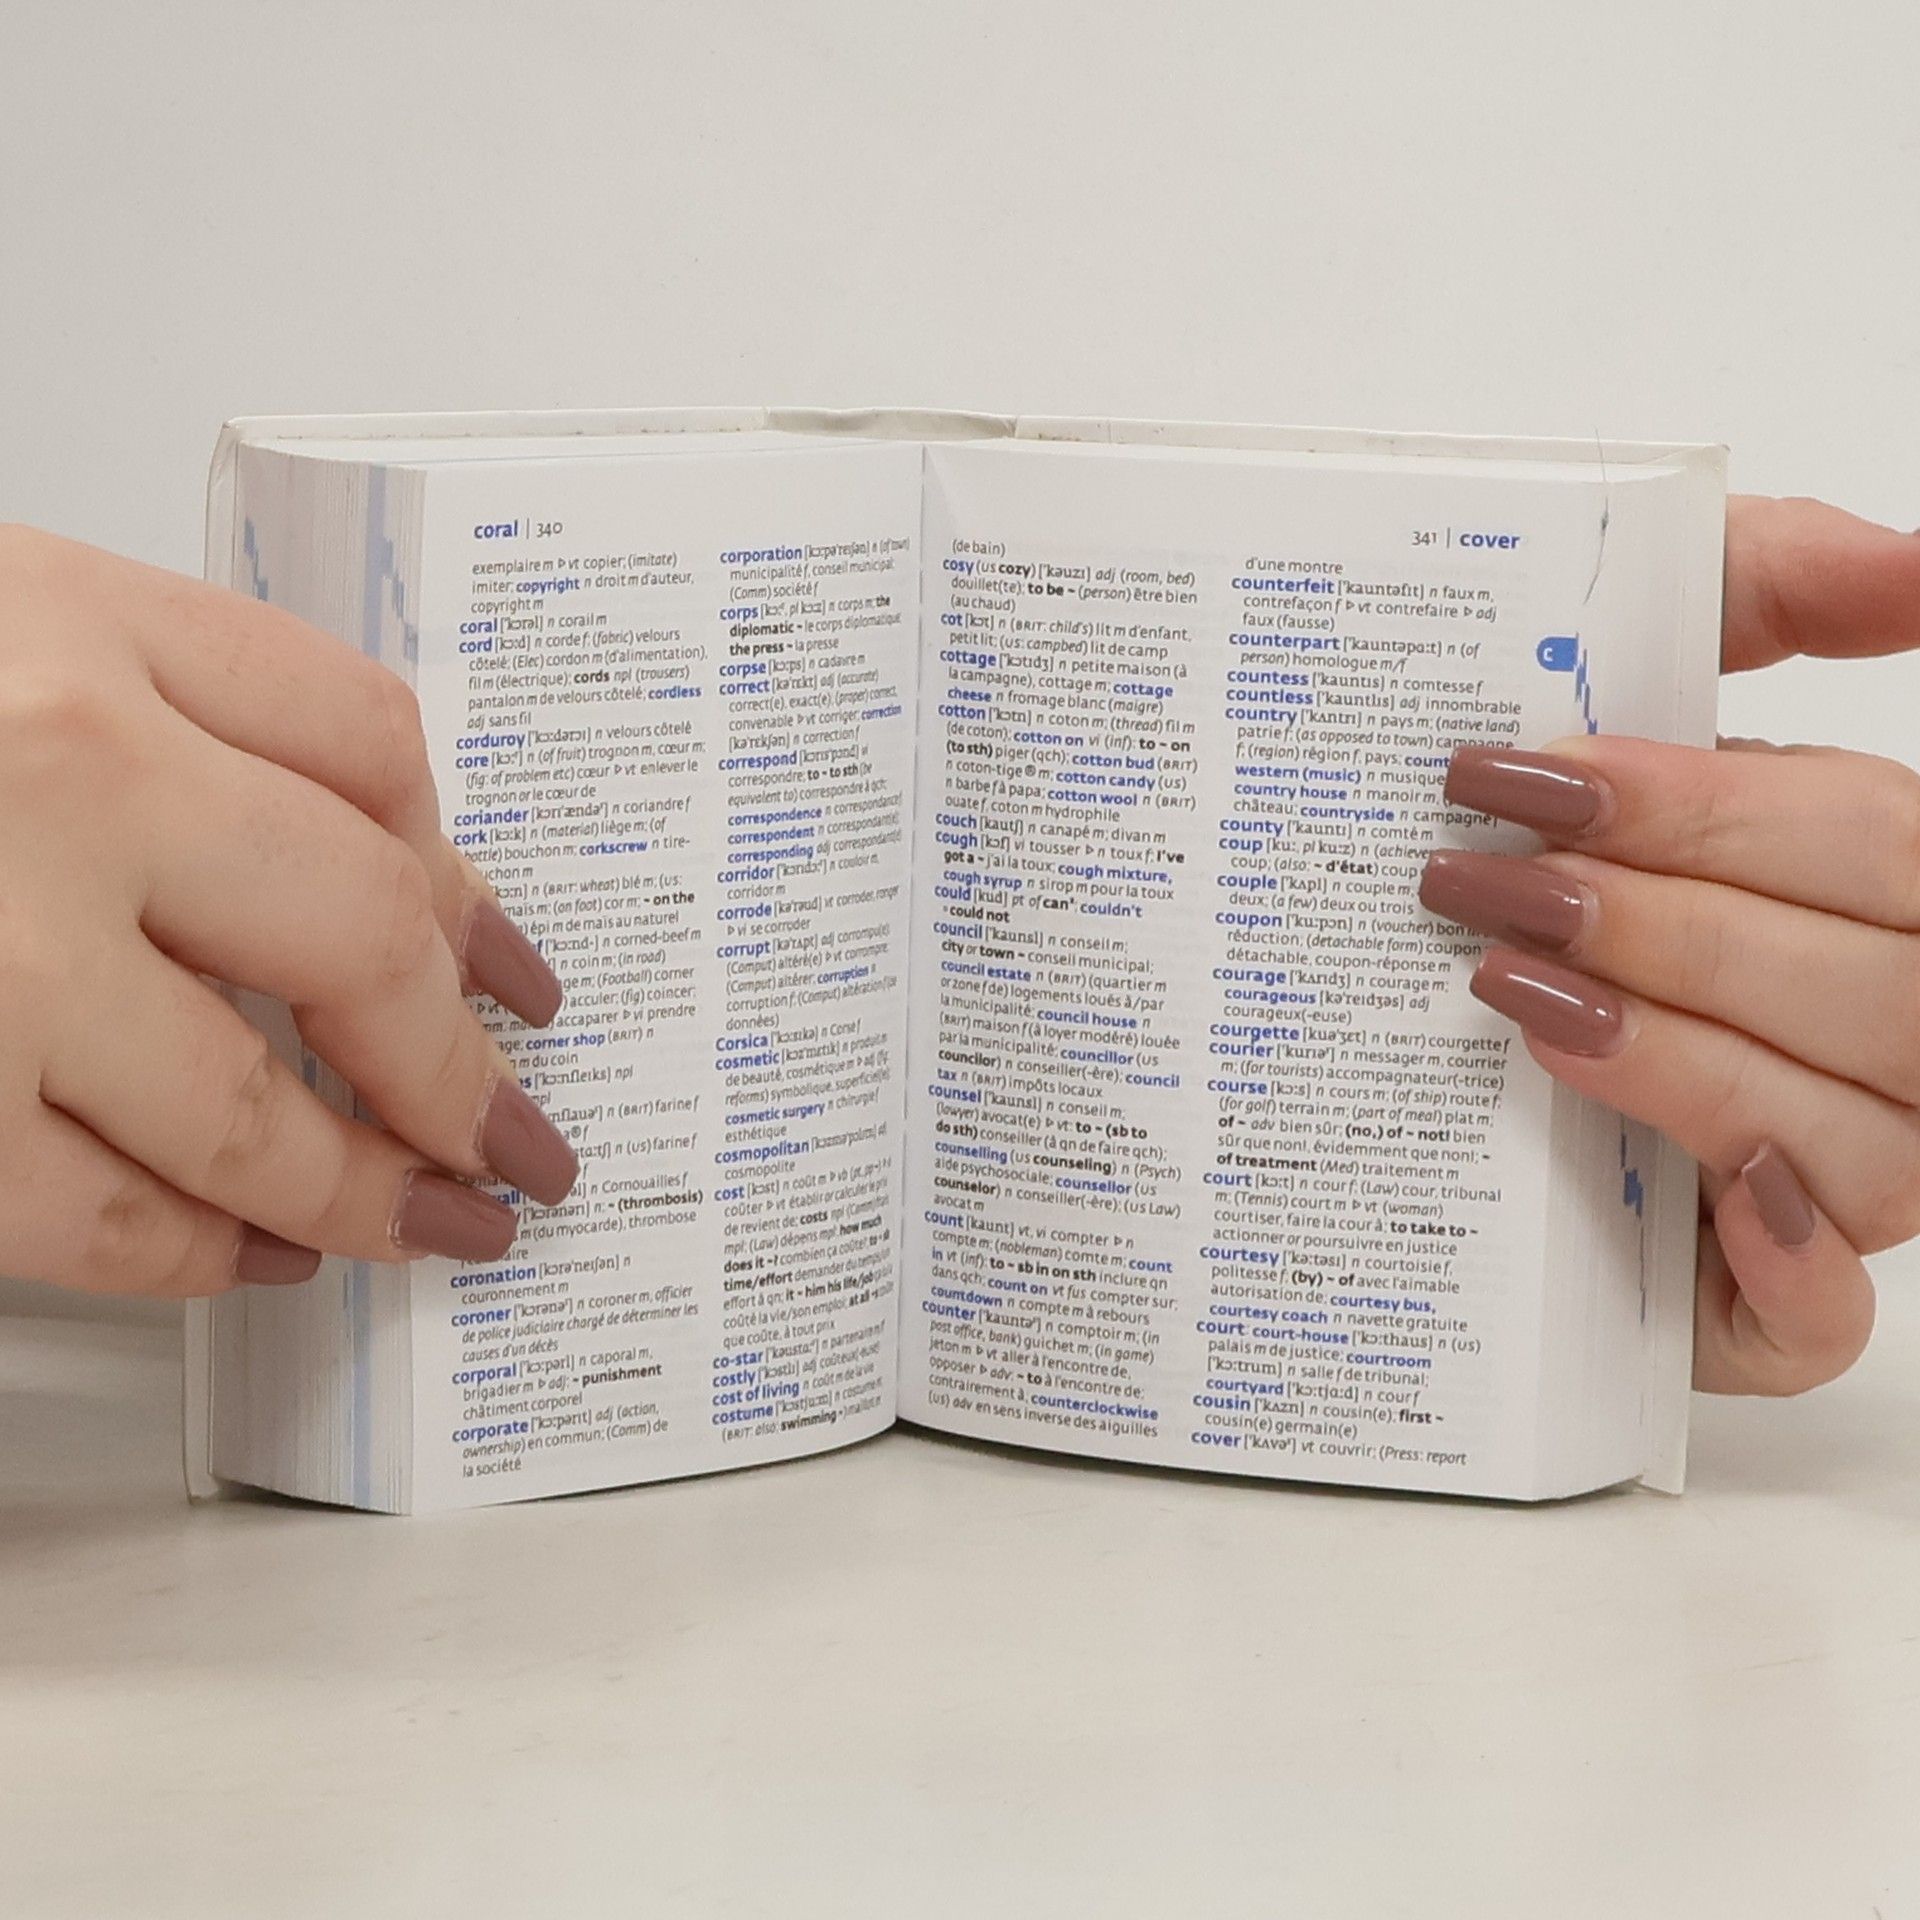 coral | 340
exemplaire m ▷ vt copier; (imitate)
imiter; copyright n droit m d'auteur,
copyright m
coral ['kɔrəl] n corail m
cord [kɔ:d] n corde f; (fabric) velours
côtelé; (Elec) cordon m (d'alimentation),
fil m (électrique); cords npl (trousers)
pantalon m de velours côtelé; cordless
adj sans fil
corduroy ['kɔ:dərɔɪ] n velours côtelé
core [kɔ:ʳ] n (of fruit) trognon m, cœur m;
(fig: of problem etc) cœur ▷ vt enlever le
trognon or le cœur de
coriander [kɔrɪ'ændəʳ] n coriandre f
cork [kɔ:k] n (material) liège m; (of
bottle) bouchon m; corkscrew n tire-
bouchon m
n (BRIT: wheat) blé m; (US:
maïs m; (on foot) cor m; ~ on the
épi m de maïs au naturel
n corned-beef m
n coin m; (in road)
m; (Football) corner
acculer; (fig) coincer;
accaparer ▷ vi prendre
corner shop (BRIT) n
m du coin
['kɔ:nfleɪks] npl
n (BRIT) farine f
n (US) farine f
n Cornouailles f
n: ~ (thrombosis)
m (du myocarde), thrombose
coronation [kɔrə'neɪʃən] n
couronnement m
coroner ['kɔrənəʳ] n coroner m, officier
de police judiciaire chargé de déterminer les
causes d'un décès
corporal ['kɔ:pərl] n caporal m,
brigadier m ▷ adj: ~ punishment
châtiment corporel
corporate ['kɔ:pərɪt] adj (action,
ownership) en commun; (Comm) de
la société
corporation [kɔ:pə'reɪʃən] n (of town)
municipalité f, conseil municipal;
(Comm) société f
corps [kɔ:ʳ, pl kɔ:z] n corps m; the
diplomatic ~ le corps diplomatique;
the press ~ la presse
corpse [kɔ:ps] n cadavre m
correct [kə'rɛkt] adj (accurate)
correct(e), exact(e); (proper) correct,
convenable ▷ vt corriger; correction
[kə'rɛkʃən] n correction f
correspond [kɔrɪs'pɔnd] vi
correspondre; to ~ to sth (be
equivalent to) correspondre à qch;
correspondence n correspondance f
correspondent n correspondant(e);
corresponding adj correspondant(e)
corridor ['kɔrɪdɔ:ʳ] n couloir m,
corridor m
corrode [kə'rəud] vt corroder, ronger
▷ vi se corroder
corrupt [kə'rʌpt] adj corrompu(e);
(Comput) altéré(e) ▷ vt corrompre;
(Comput) altérer; corruption n
corruption f; (Comput) altération f (de
données)
Corsica ['kɔ:sɪkə] n Corse f
cosmetic [kɔz'mɛtɪk] n produit m
de beauté, cosmétique m ▷ adj (fig:
reforms) symbolique, superficiel(le);
cosmetic surgery n chirurgie f
esthétique
cosmopolitan [kɔzmə'pɔlɪtn] adj
cosmopolite
cost [kɔst] n coût m ▷ vb (pt, pp ~) ▷ vi
coûter ▷ vt établir or calculer le prix
de revient de; costs npl (Comm) frais
mpl; (Law) dépens mpl; how much
does it ~? combien ça coûte?; to ~ sb
time/effort demander du temps/un
effort à qn; it ~ him his life/job ça lui a
coûté la vie/son emploi; at all ~s coûte
que coûte, à tout prix
co-star ['kəustɑ:ʳ] n partenaire m/f
costly ['kɔstlɪ] adj coûteux(-euse)
cost of living n coût m de la vie
costume ['kɔstju:m] n costume m;
(BRIT: also: swimming ~) maillot m
341 | cover
(de bain)
cosy (US cozy) ['kəuzɪ] adj (room, bed)
douillet(te); to be ~ (person) être bien
(au chaud)
cot [kɔt] n (BRIT: child's) lit m d'enfant,
petit lit; (US: campbed) lit de camp
cottage ['kɔtɪdʒ] n petite maison (à
la campagne), cottage m; cottage
cheese n fromage blanc (maigre)
cotton ['kɔtn] n coton m; (thread) fil m
(de coton); cotton on vi (inf): to ~ on
(to sth) piger (qch); cotton bud (BRIT)
n coton-tige® m; cotton candy (US)
n barbe f à papa; cotton wool n (BRIT)
ouate f, coton m hydrophile
couch [kautʃ] n canapé m; divan m
cough [kɔf] vi tousser ▷ n toux f; I've
got a ~ j'ai la toux; cough mixture,
cough syrup n sirop m pour la toux
could [kud] pt of can²; couldn't
= could not
council ['kaunsl] n conseil m;
city or town ~ conseil municipal;
council estate n (BRIT) (quartier m
or zone f de) logements loués à/par
la municipalité; council house n
(BRIT) maison f (à loyer modéré) louée
par la municipalité; councillor (US
councilor) n conseiller(-ère); council
tax n (BRIT) impôts locaux
counsel ['kaunsl] n conseil m;
(lawyer) avocat(e) ▷ vt: to ~ (sb to
do sth) conseiller (à qn de faire qch);
counselling (US counseling) n (Psych)
aide psychosociale; counsellor (US
counselor) n conseiller(-ère); (US Law)
avocat m
count [kaunt] vt, vi compter ▷ n
compte m; (nobleman) comte m; count
in vt (inf): to ~ sb in on sth inclure qn
dans qch; count on vt fus compter sur;
countdown n compte m à rebours
counter ['kauntəʳ] n comptoir m; (in
post office, bank) guichet m; (in game)
jeton m ▷ vt aller à l'encontre de,
opposer ▷ adv: ~ to à l'encontre de;
contrairement à; counterclockwise
(US) adv en sens inverse des aiguilles
d'une montre
counterfeit ['kauntəfɪt] n faux m,
contrefaçon f ▷ vt contrefaire ▷ adj
faux (fausse)
counterpart ['kauntəpɑ:t] n (of
person) homologue m/f
countess ['kauntɪs] n comtesse f
countless ['kauntlɪs] adj innombrable
country ['kʌntrɪ] n pays m; (native land)
patrie f; (as opposed to town) campagne
f; (region) région f, pays; count
western (music) n musique
country house n manoir m,
château; countryside n campagne f
county ['kauntɪ] n comté m
coup [ku:, pl ku:z] n (achieve
coup; (also: ~ d'état) coup
couple ['kʌpl] n couple m;
deux; (a few) deux ou trois
coupon ['ku:pɔn] n (voucher) bon m
réduction; (detachable form) coupon
détachable, coupon-réponse m
courage ['kʌrɪdʒ] n courage m;
courageous [kə'reɪdʒəs] adj
courageux(-euse)
courgette [kuə'ʒɛt] n (BRIT) courgette f
courier ['kurɪəʳ] n messager m, courrier
m; (for tourists) accompagnateur(-trice)
course [kɔ:s] n cours m; (of ship) route f;
(for golf) terrain m; (part of meal) plat m;
of ~ adv bien sûr; (no,) of ~ not! bien
sûr que non!, évidemment que non!; ~
of treatment (Med) traitement m
court [kɔ:t] n cour f; (Law) cour, tribunal
m; (Tennis) court m ▷ vt (woman)
courtiser, faire la cour à; to take to ~
actionner or poursuivre en justice
courtesy ['kə:təsɪ] n courtoisie f,
politesse f; (by) ~ of avec l'aimable
autorisation de; courtesy bus,
courtesy coach n navette gratuite
court: court-house ['kɔ:thaus] n (US)
palais m de justice; courtroom
['kɔ:trum] n salle f de tribunal;
courtyard ['kɔ:tjɑ:d] n cour f
cousin ['kʌzn] n cousin(e); first ~
cousin(e) germain(e)
cover ['kʌvəʳ] vt couvrir; (Press: report
C